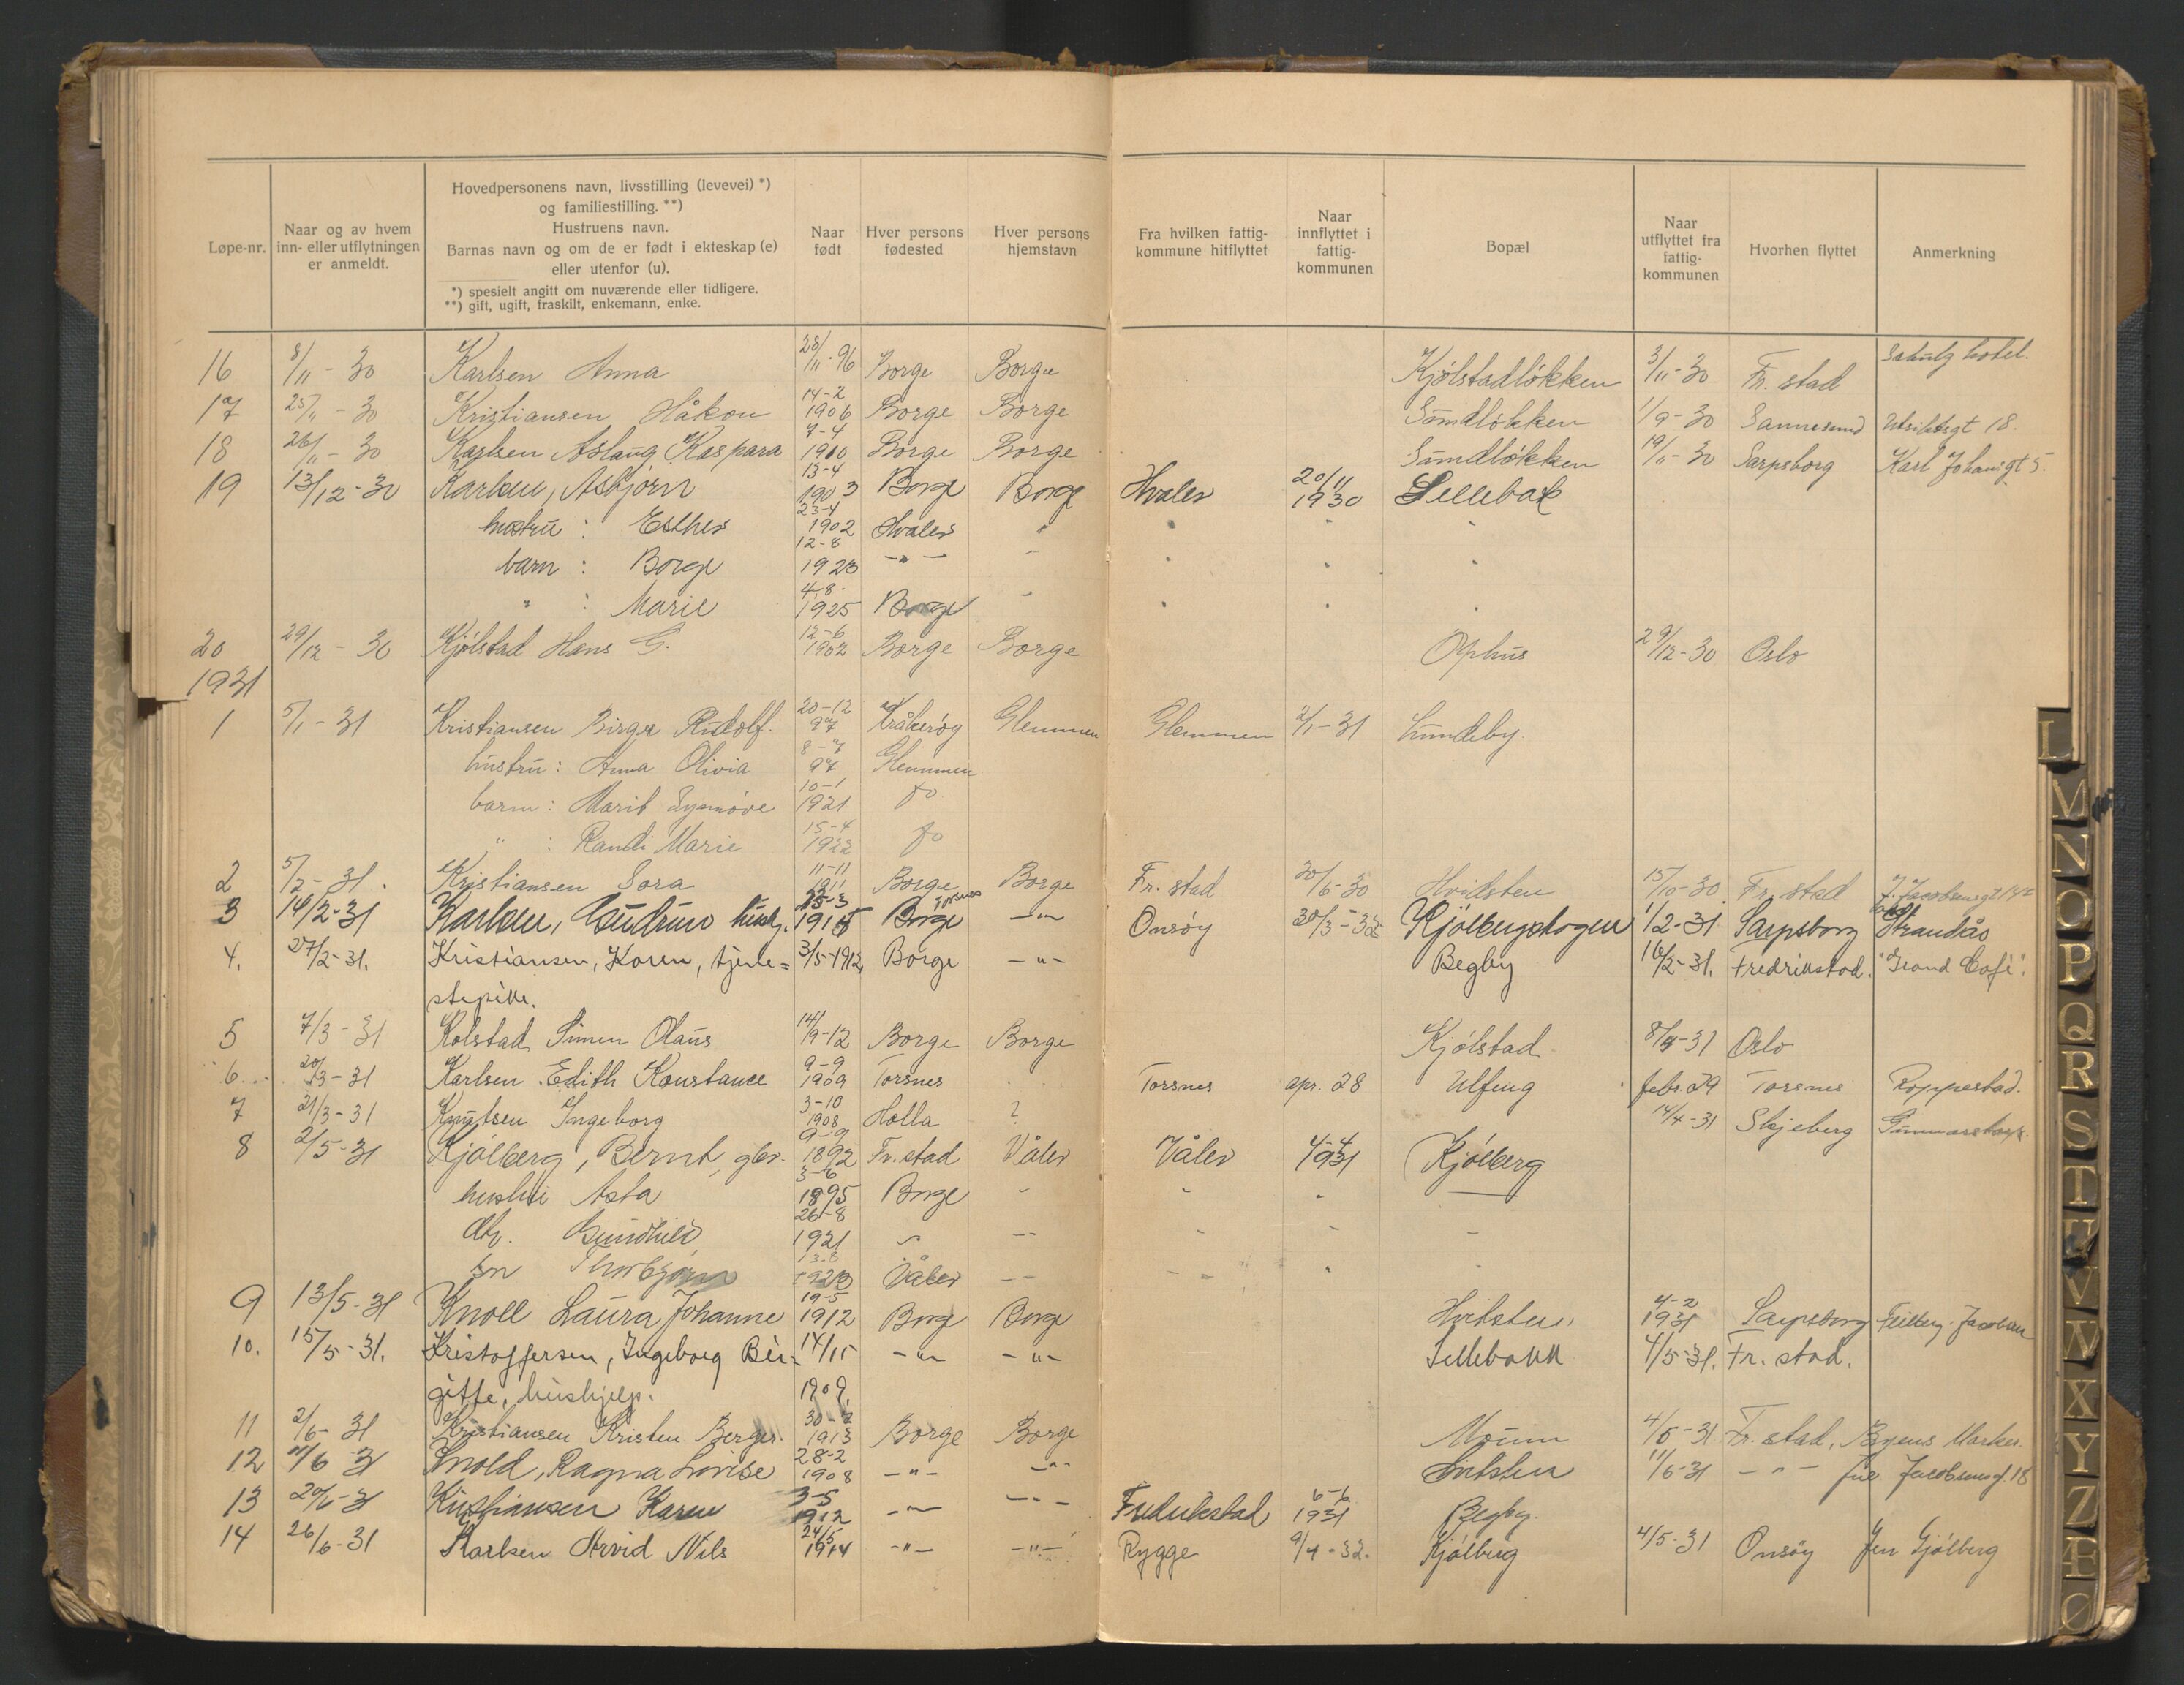 Løpe-nr.
Naar og av hvem
inn- eller utflytningen
er anmeldt.
Hovedpersonens navn, livsstilling (levevei) *)
og familiestilling. **)
Hustruens navn.
Barnas navn og om de er født i ekteskap (e)
eller utenfor (u).
*) spesielt angitt om nuværende eller tidligere.
**) gift, ugift, fraskilt, enkemann, enke.
Naar
født
Hver persons
fødested
Hver persons
hjemstavn
Fra hvilken fattig-
kommune hitflyttet
Naar
innflyttet i
fattig-
kommunen
Bopæl
Naar
utflyttet fra
fattig-
kommunen
Hvorhen flyttet
Anmerkning
16 8/11-30 Karlsen Anna 28/11-96 Borge Borge Kjølstadløkken 3/11-30 Fr. stad Schulz hotel.
17 25/11-30 Kristiansen Håkon 14-2 1906 Borge Borge Sundløkken 1/9-30 Sannesund Utsiktsgt 18.
18 26/11-30 Karlsen Aslaug Kaspara 7-4 1910 Borge Borge Sundløkken 19/11-30 Sarpsborg Karl Johansgt 5.
19 13/12-30 Karlsen, Asbjørn 13-4 1903 Borge Borge Hvaler 20/11 1930 Sellebak
hustru: Esther 23-4 1902 Hvaler "
barn: Borge 12-8 1923 -"- "
" : Marie 4-8. 1925 Borge "
20 29/12-30 Kjølstad Hans G. 12-6 1902 Borge Borge Ophus 29/12-30 Oslo
1931
1 5/1-31 Kristiansen Birger Rudolf. 20-12 97 Kråkerøy Glemmen Glemmen 2/1-31 Lundeby.
hustru: Anna Olivia 8-7 97 Glemmen
barn: Marit Synnøve 10-1 1921 do
" : Randi Marie 15-4 1922 do
2 5/2-31. Kristiansen Sora 11-11 1911 Borge Borge Fr. stad 30/6-30 Hvidsten 15/10-30 Fr. stad
3 14/2-31 Karlsen, Gudrun hush. Borge Torsnes -"- Onsøy Kjølbergskogen 1/2-31 Sarpsborg Strandås
4. 27/2-31. Kristiansen, Karen, tjene= 3/5-1912 Borge -"- Begby 16/2-31. Fredrikstad. "Grand Café".
stepike.
5 7/3-31 Kolstad Simen Olaus 14/9-12 Borge Borge Kjølstad 8/4-31 Oslo
6 20/3-31 Karlsen Edith Konstance 9-9 1909 Torsnes Torsnes apr. 28 Ulfeng febr. 29 Torsnes Roppestad.
7 21/3-31 Knutsen Ingeborg 3-10 1908 Holla ? 14/4-31 Skjeberg Gunnarstorp.
8 2/5-31 Kjølberg, Bernt, gbr. 9-9 1892 Fr. stad Våler Våler 4-4 1931 Kjølberg
hustru Asta 3-6 1895 Borge "
dtr. Gundhild 26-8 1921 "
søn Thorbjørn 13-8 1923 Våler
9 13/5-31 Knoll Laura Johanne 19-5 1912 Borge Borge Hvitsten 4-2 1931 Sarpsborg Feilberg Jacobsen
10. 15/5-31. Kristoffersen, Ingeborg Bir= 14/11 -"- -"- Sellebakk 4/5-31. Fr. stad.
gitte, hushjelp. 1909.
11 2/6-31 Kristiansen Kristen Berger. 1913 Borge Borge Moum 4/5-31 Fr. stad, Byens Marker.
12 11/6 31 Knold, Ragna Lovise 28-2 1908 -"- -"- Hvitsten 11/6-31 -"- Jul Jacobsensgt. 18
13 20/6-31 Kristiansen Karen 3-5 1912 -"- -"- Fredrikstad 6-6 1931 Begby.
14 26/6-31 Karlsen Arvid Nils 24/5 1914 -"- -"- Rygge 9/4-32. Kjølberg 4/5-31 Onsøy Jen Gjølberg
L
M
N
O
P
Q
R
S
T
U
V
W
X
Y
Z
Æ
Ø